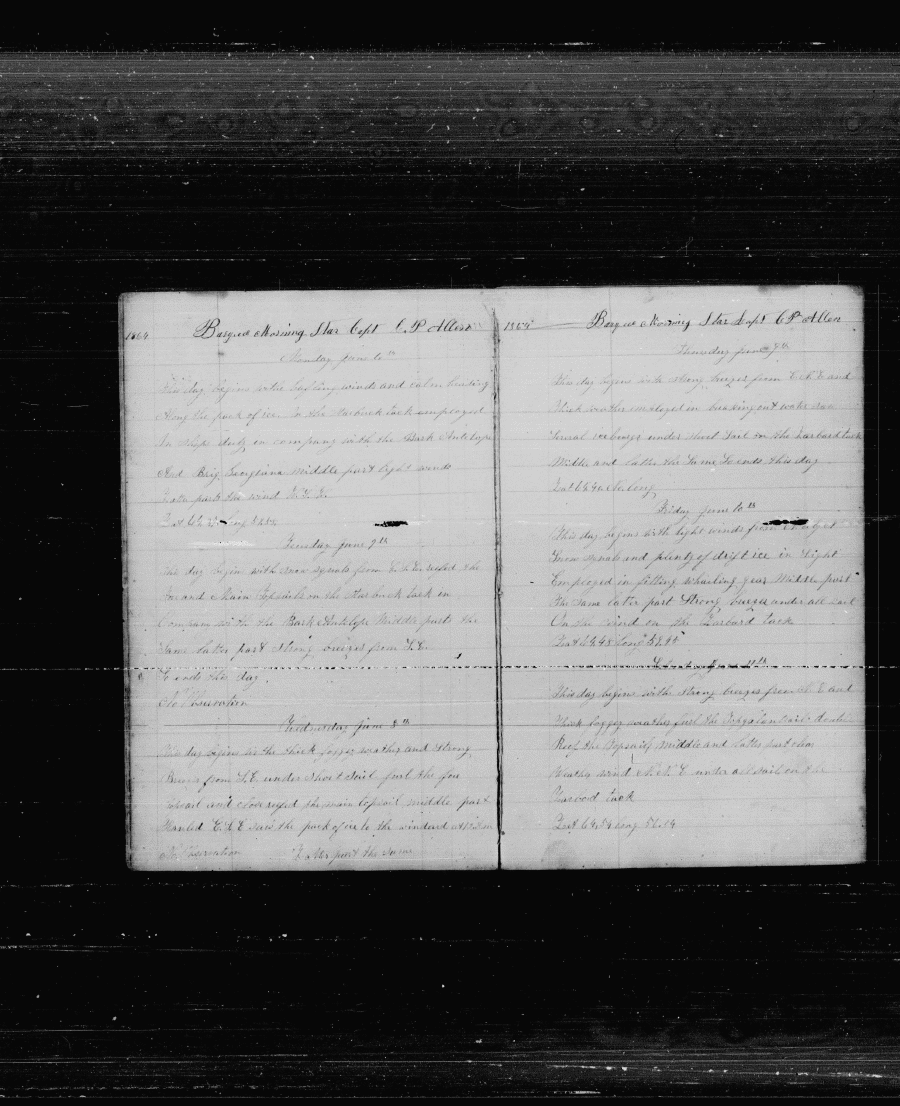 1864 Barque Morning Star Capt C. P Allen
Monday June 6 th
This day begins with baffling winds and calm beating
Along the pack of ice on the Starbord tack employed
In ships duty in company with the Bark Antelope
And Brig Georgiana Middle part light winds
Later part the wind
Lat Long
Tuesday June 7 th
This day begin with snow squals from reefed the
Fore and Main Topsails on the Starbord tack in
Company with the Bark Antelope Middle part the
Same later part Strong breizes from S.E.
So ends this day
No Observation
Wednesday June 8 th
This day begins with thick foggy weather and Strong
Breizes from S.E. under Short Sail furl the fou
topsail and close reefed the main topsail middle part
Hauled saw the pack of ice to the windard
No Observation Later part the same
1864 Barque Morning Star Capt C P Allen
Thursday June 9 th
This day begins with strong breezes from and
Thick weather employed in breaking out water saw
Several icebergs under short Sail on the Larbard tack
Middle and latter the Same So ends this day
Lat No long
Friday June 10 th
This day begins with light winds from
Snow squals and plenty of drift ice in Sight
Employed in fitting whailing gear Middle part
the same later part Strong breizes under all sail
On the wind on the Larbard tack
Lat Long
June 11 th
This day begins with Strong breezes from and
Thick foggy weather furl the Topgalantsails double
Reef the Topsails Middle and latter part clear
Weather wind under all sail on the
Larbord tack
Lat 64.54 Long 56.14